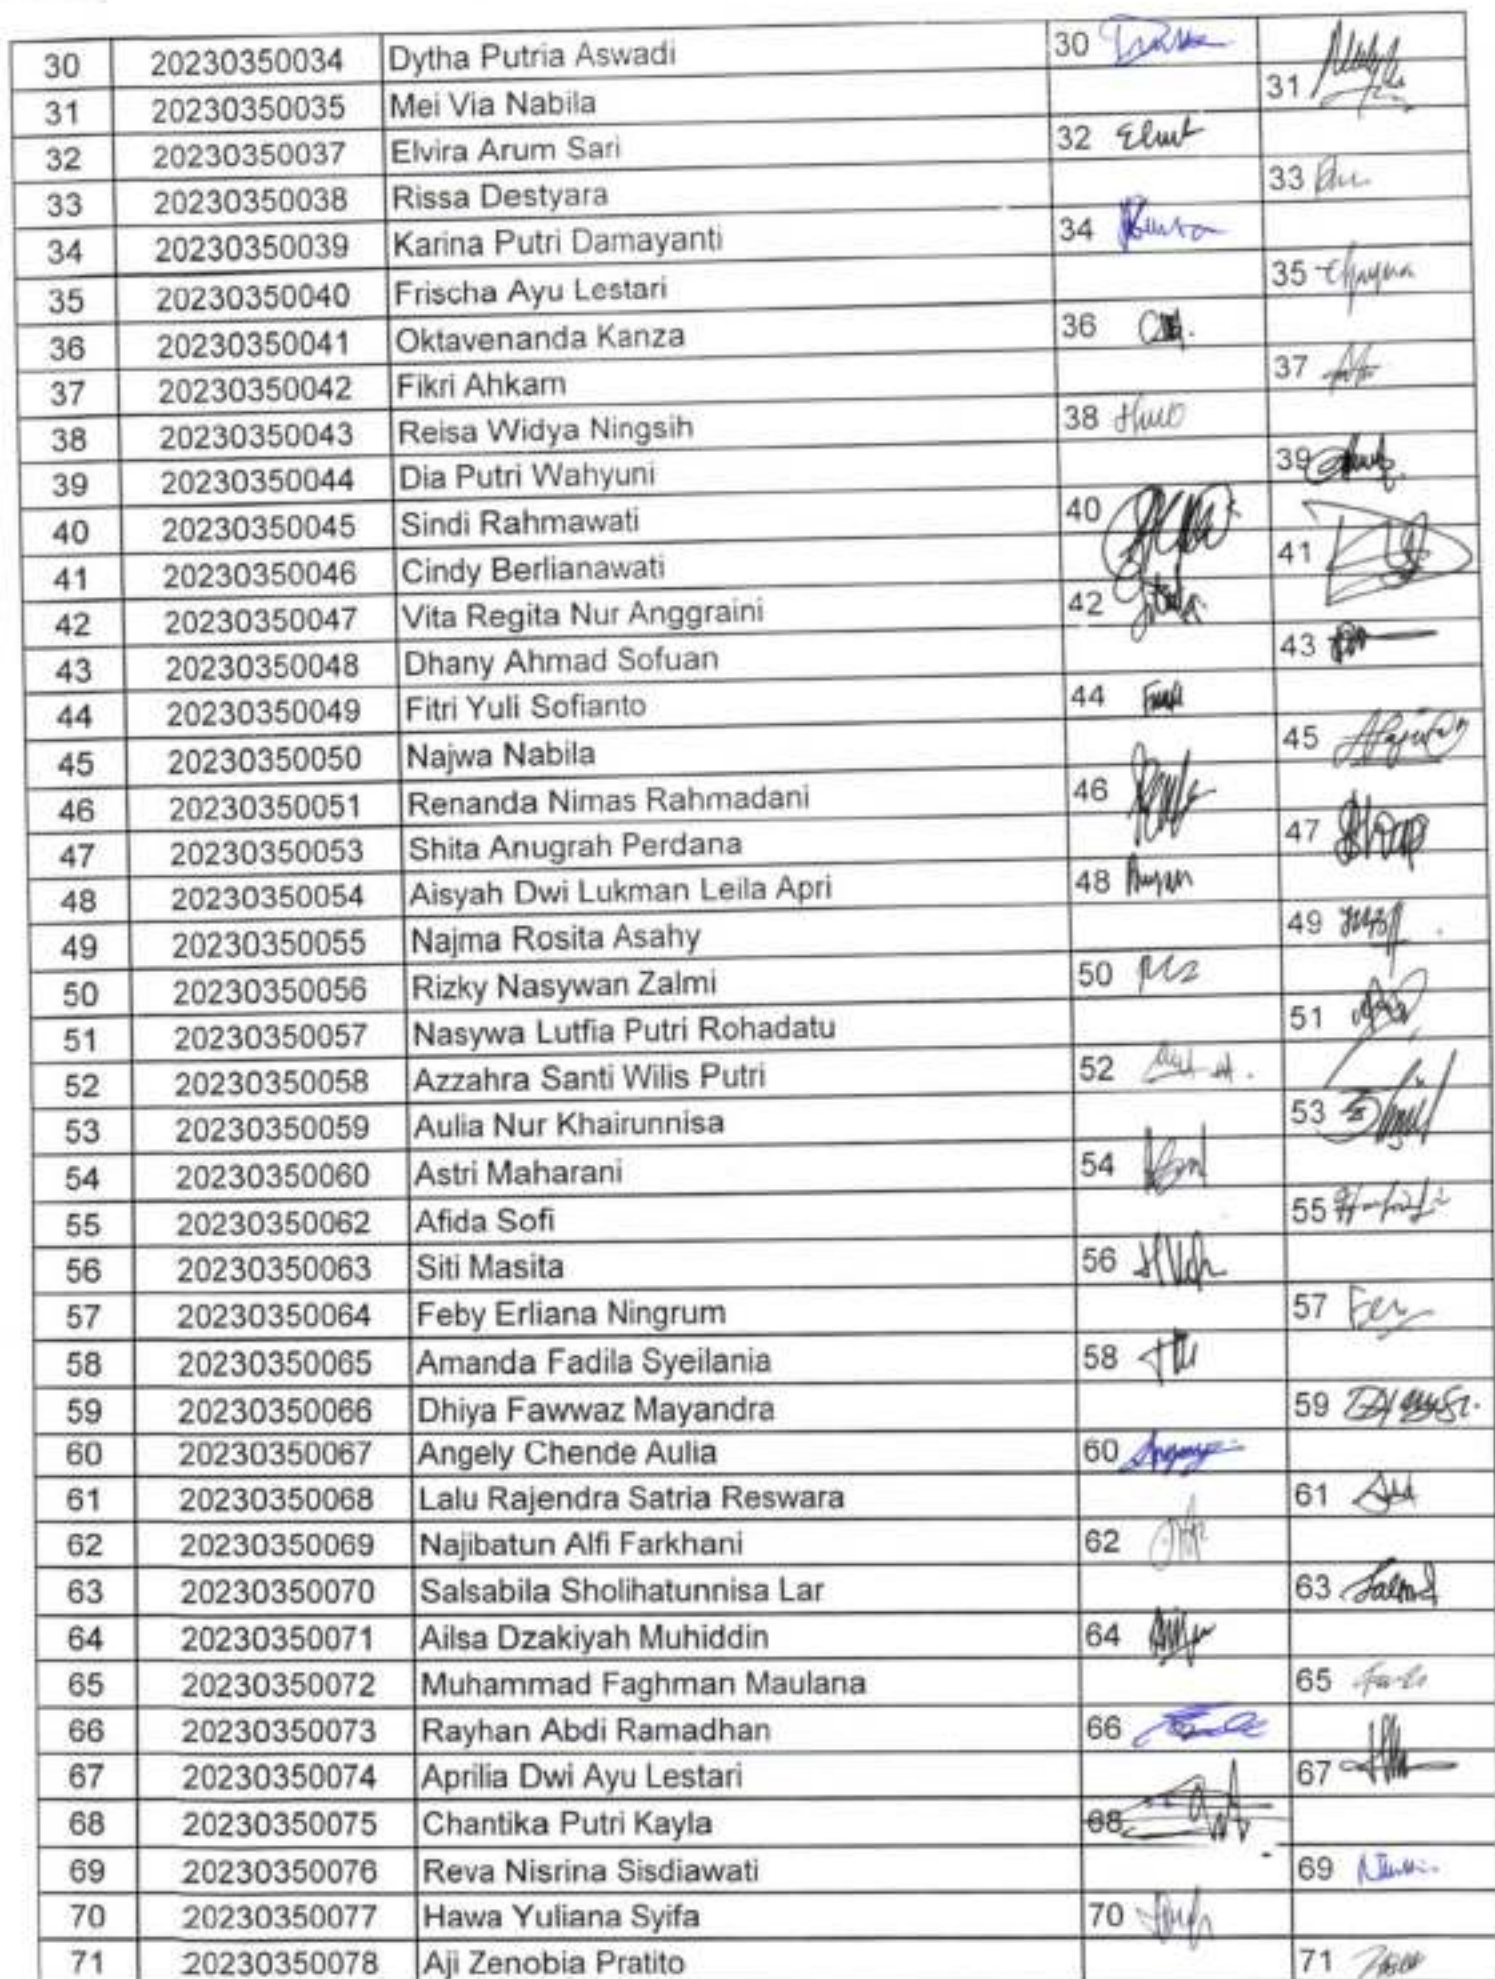 30 20230350034 Dytha Putria Aswadi 30
31 20230350035 Mei Via Nabila 31
32 20230350037 Elvira Arum Sari 32
33 20230350038 Rissa Destyara 33
34 20230350039 Karina Putri Damayanti 34
35 20230350040 Frischa Ayu Lestari 35
36 20230350041 Oktavenanda Kanza 36
37 20230350042 Fikri Ahkam 37
38 20230350043 Reisa Widya Ningsih 38
39 20230350044 Dia Putri Wahyuni 39
40 20230350045 Sindi Rahmawati 40
41 20230350046 Cindy Berlianawati 41
42 20230350047 Vita Regita Nur Anggraini 42
43 20230350048 Dhany Ahmad Sofuan 43
44 20230350049 Fitri Yuli Sofianto 44
45 20230350050 Najwa Nabila 45
46 20230350051 Renanda Nimas Rahmadani 46
47 20230350053 Shita Anugrah Perdana 47
48 20230350054 Aisyah Dwi Lukman Leila Apri 48
49 20230350055 Najma Rosita Asahy 49
50 20230350056 Rizky Nasywan Zalmi 50
51 20230350057 Nasywa Lutfia Putri Rohadatu 51
52 20230350058 Azzahra Santi Wilis Putri 52
53 20230350059 Aulia Nur Khairunnisa 53
54 20230350060 Astri Maharani 54
55 20230350062 Afida Sofi 55
56 20230350063 Siti Masita 56
57 20230350064 Feby Erliana Ningrum 57
58 20230350065 Amanda Fadila Syeilania 58
59 20230350066 Dhiya Fawwaz Mayandra 59
60 20230350067 Angely Chende Aulia 60
61 20230350068 Lalu Rajendra Satria Reswara 61
62 20230350069 Najibatun Alfi Farkhani 62
63 20230350070 Salsabila Sholihatunnisa Lar 63
64 20230350071 Ailsa Dzakiyah Muhiddin 64
65 20230350072 Muhammad Faghman Maulana 65
66 20230350073 Rayhan Abdi Ramadhan 66
67 20230350074 Aprilia Dwi Ayu Lestari 67
68 20230350075 Chantika Putri Kayla 68
69 20230350076 Reva Nisrina Sisdiawati 69
70 20230350077 Hawa Yuliana Syifa 70
71 20230350078 Aji Zenobia Pratito 71